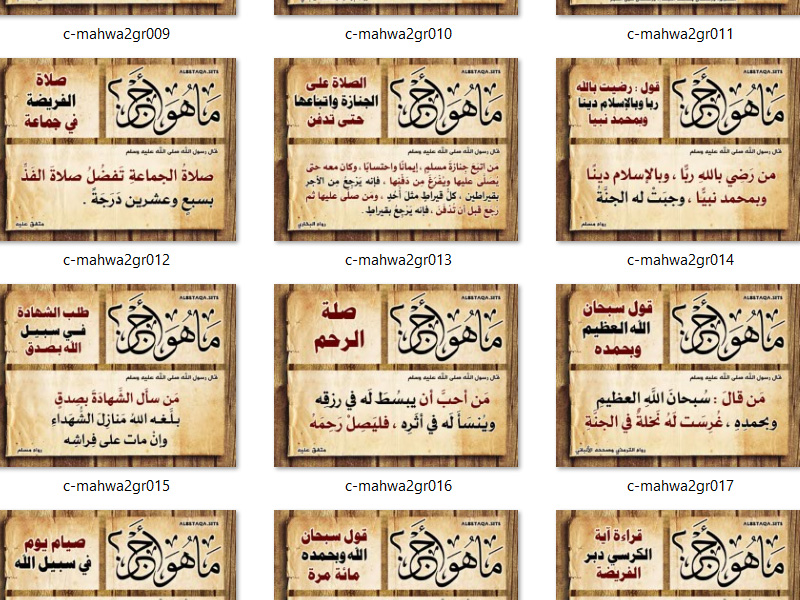 c-mahwa2gr009
c-mahwa2gr010
c-mahwa2gr011
ALBETAQA.SITE
ما هو أجر؟
صلاة
الفريضة
في جماعة
قال رسول الله صلى الله عليه وسلم
صلاةُ الجماعةِ تَفضُلُ صلاةَ الفذِّ
بسبعٍ وعشرين دَرَجَةً .
متفق عليه
c-mahwa2gr012
ALBETAQA.SITE
ما هو أجر؟
الصلاة على
الجنازة واتباعها
حتى تدفن
قال رسول الله صلى الله عليه وسلم
من اتبَعَ جَنازةَ مسلمٍ ، إيمانًا واحتسابًا ، وكان معه حتى
يُصلَّى عليها ويُفْرَغَ من دَفنِها ، فإنه يَرجِعُ من الأجرِ
بقيراطينِ ، كلُّ قيراطٍ مثلُ أُحُدٍ ، ومَن صلَّى عليها ثم
رجع قبل أن تُدْفَنَ ، فإنه يَرْجِعُ بقيراطٍ .
رواه البخاري
c-mahwa2gr013
ALBETAQA.SITE
ما هو أجر؟
قول : رضيت بالله
ربا وبالإسلام دينا
وبمحمد نبيا
قال رسول الله صلى الله عليه وسلم
من رَضِي باللهِ ربًّا ، وبالإسلامِ دينًا
وبمحمد نبيًّا ، وجبَتْ له الجنَّةُ
رواه مسلم
c-mahwa2gr014
ALBETAQA.SITE
ما هو أجر؟
طلب الشهادة
في سبيل
الله بصدق
قال رسول الله صلى الله عليه وسلم
مَن سألَ الشَّهادَةَ بصِدقٍ
بلَّغَه اللهُ مَنازِلَ الشُّهَداءِ
وإنْ مات على فِراشِه
رواه مسلم
c-mahwa2gr015
ALBETAQA.SITE
ما هو أجر؟
صلة
الرحم
قال رسول الله صلى الله عليه وسلم
مَن أحبَّ أن يبسُطَ لَه في رزقِه
ويُنْسأَ لَه في أثَرِه ، فليَصِلْ رَحِمَهُ
متفق عليه
c-mahwa2gr016
ALBETAQA.SITE
ما هو أجر؟
قول سبحان
الله العظيم
وبحمده
قال رسول الله صلى الله عليه وسلم
مَن قالَ : سُبحانَ اللَّهِ العظيمِ
وبحمدِهِ ، غُرِسَت لَهُ نَخلةٌ في الجنَّةِ
رواه الترمذي وصححه الألباني
c-mahwa2gr017
ALBETAQA.SITE
ما هو أجر؟
صيام يوم
في سبيل الله
ALBETAQA.SITE
ما هو أجر؟
قول سبحان
الله وبحمده
مائة مرة
ALBETAQA.SITE
ما هو أجر؟
قراءة آية
الكرسي دبر
الفريضة